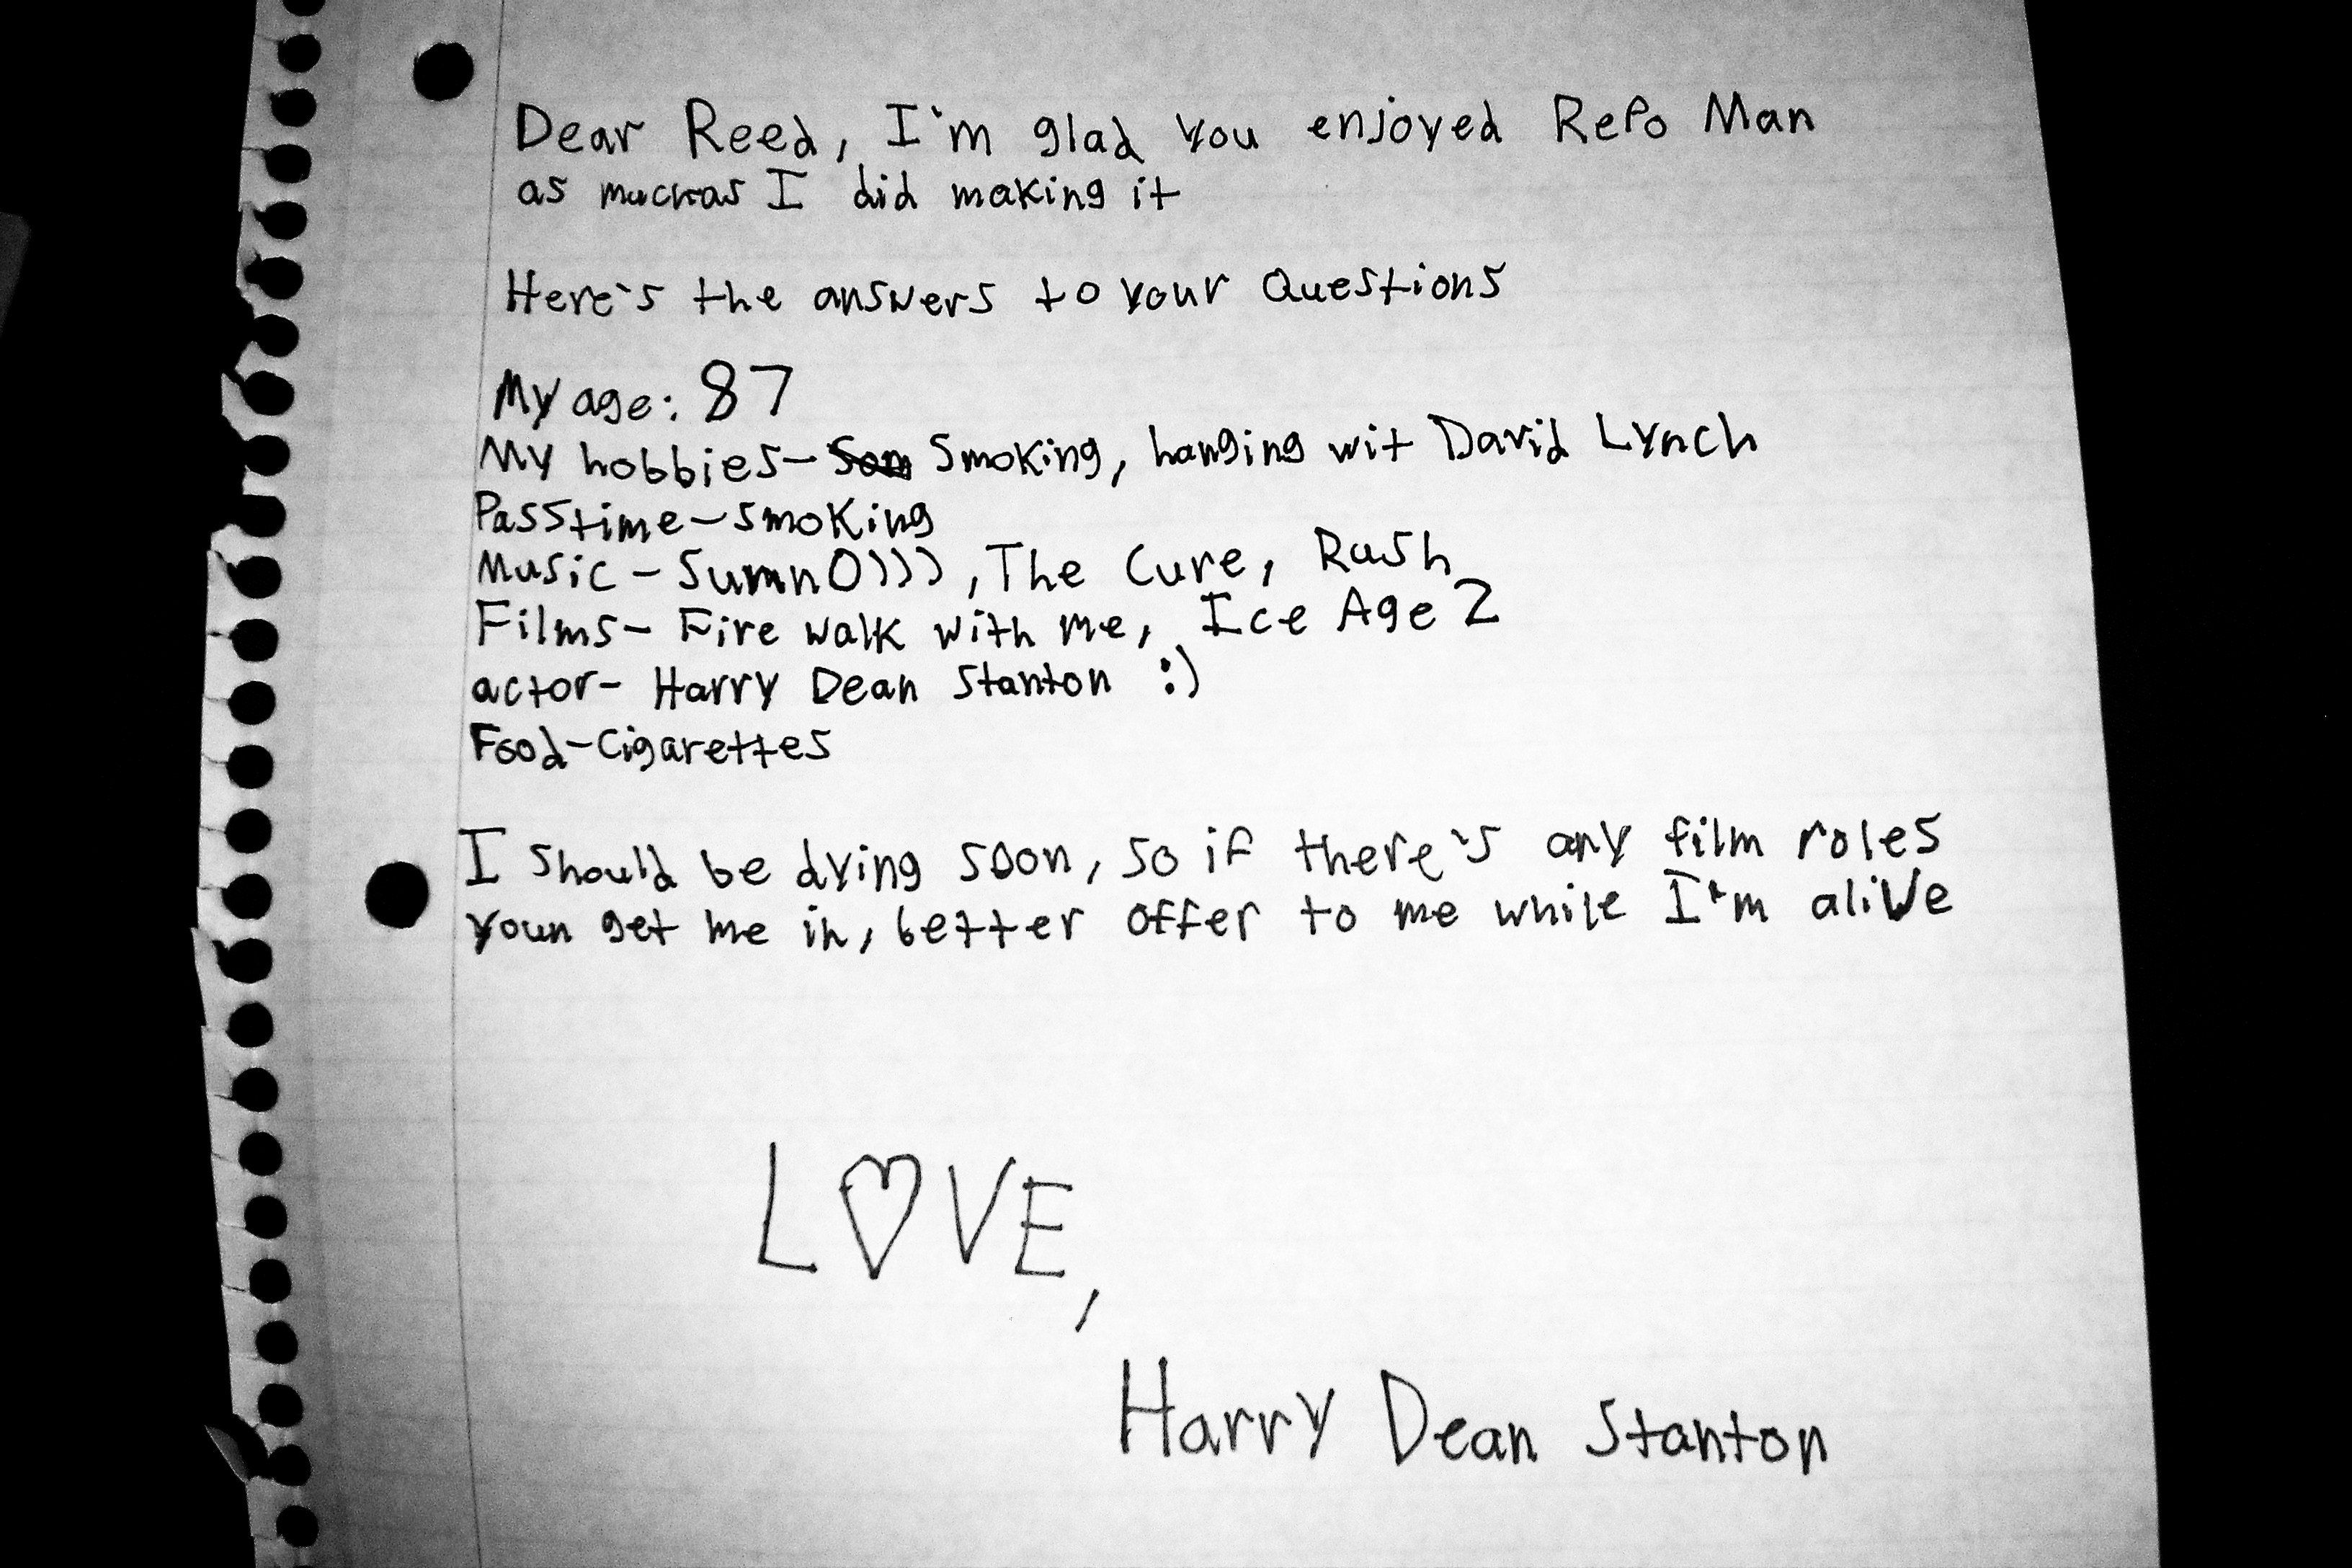 Dear Reed, I'm glad you enjoyed Repo Man
as muchas I did making it
Here's the answers to your Questions
My age: 87
My hobbies- Som Smoking, hanging wit David Lynch
Passtime-smoking
Music - SumnO))), The Cure, Rush
Films- Fire walk with me, Ice Age 2
actor- Harry Dean Stanton :)
Food-Cigarettes
I should be dying soon, so if there's any film roles
youn get me in, better offer to me while I'm alive
LOVE,
Harry Dean Stanton